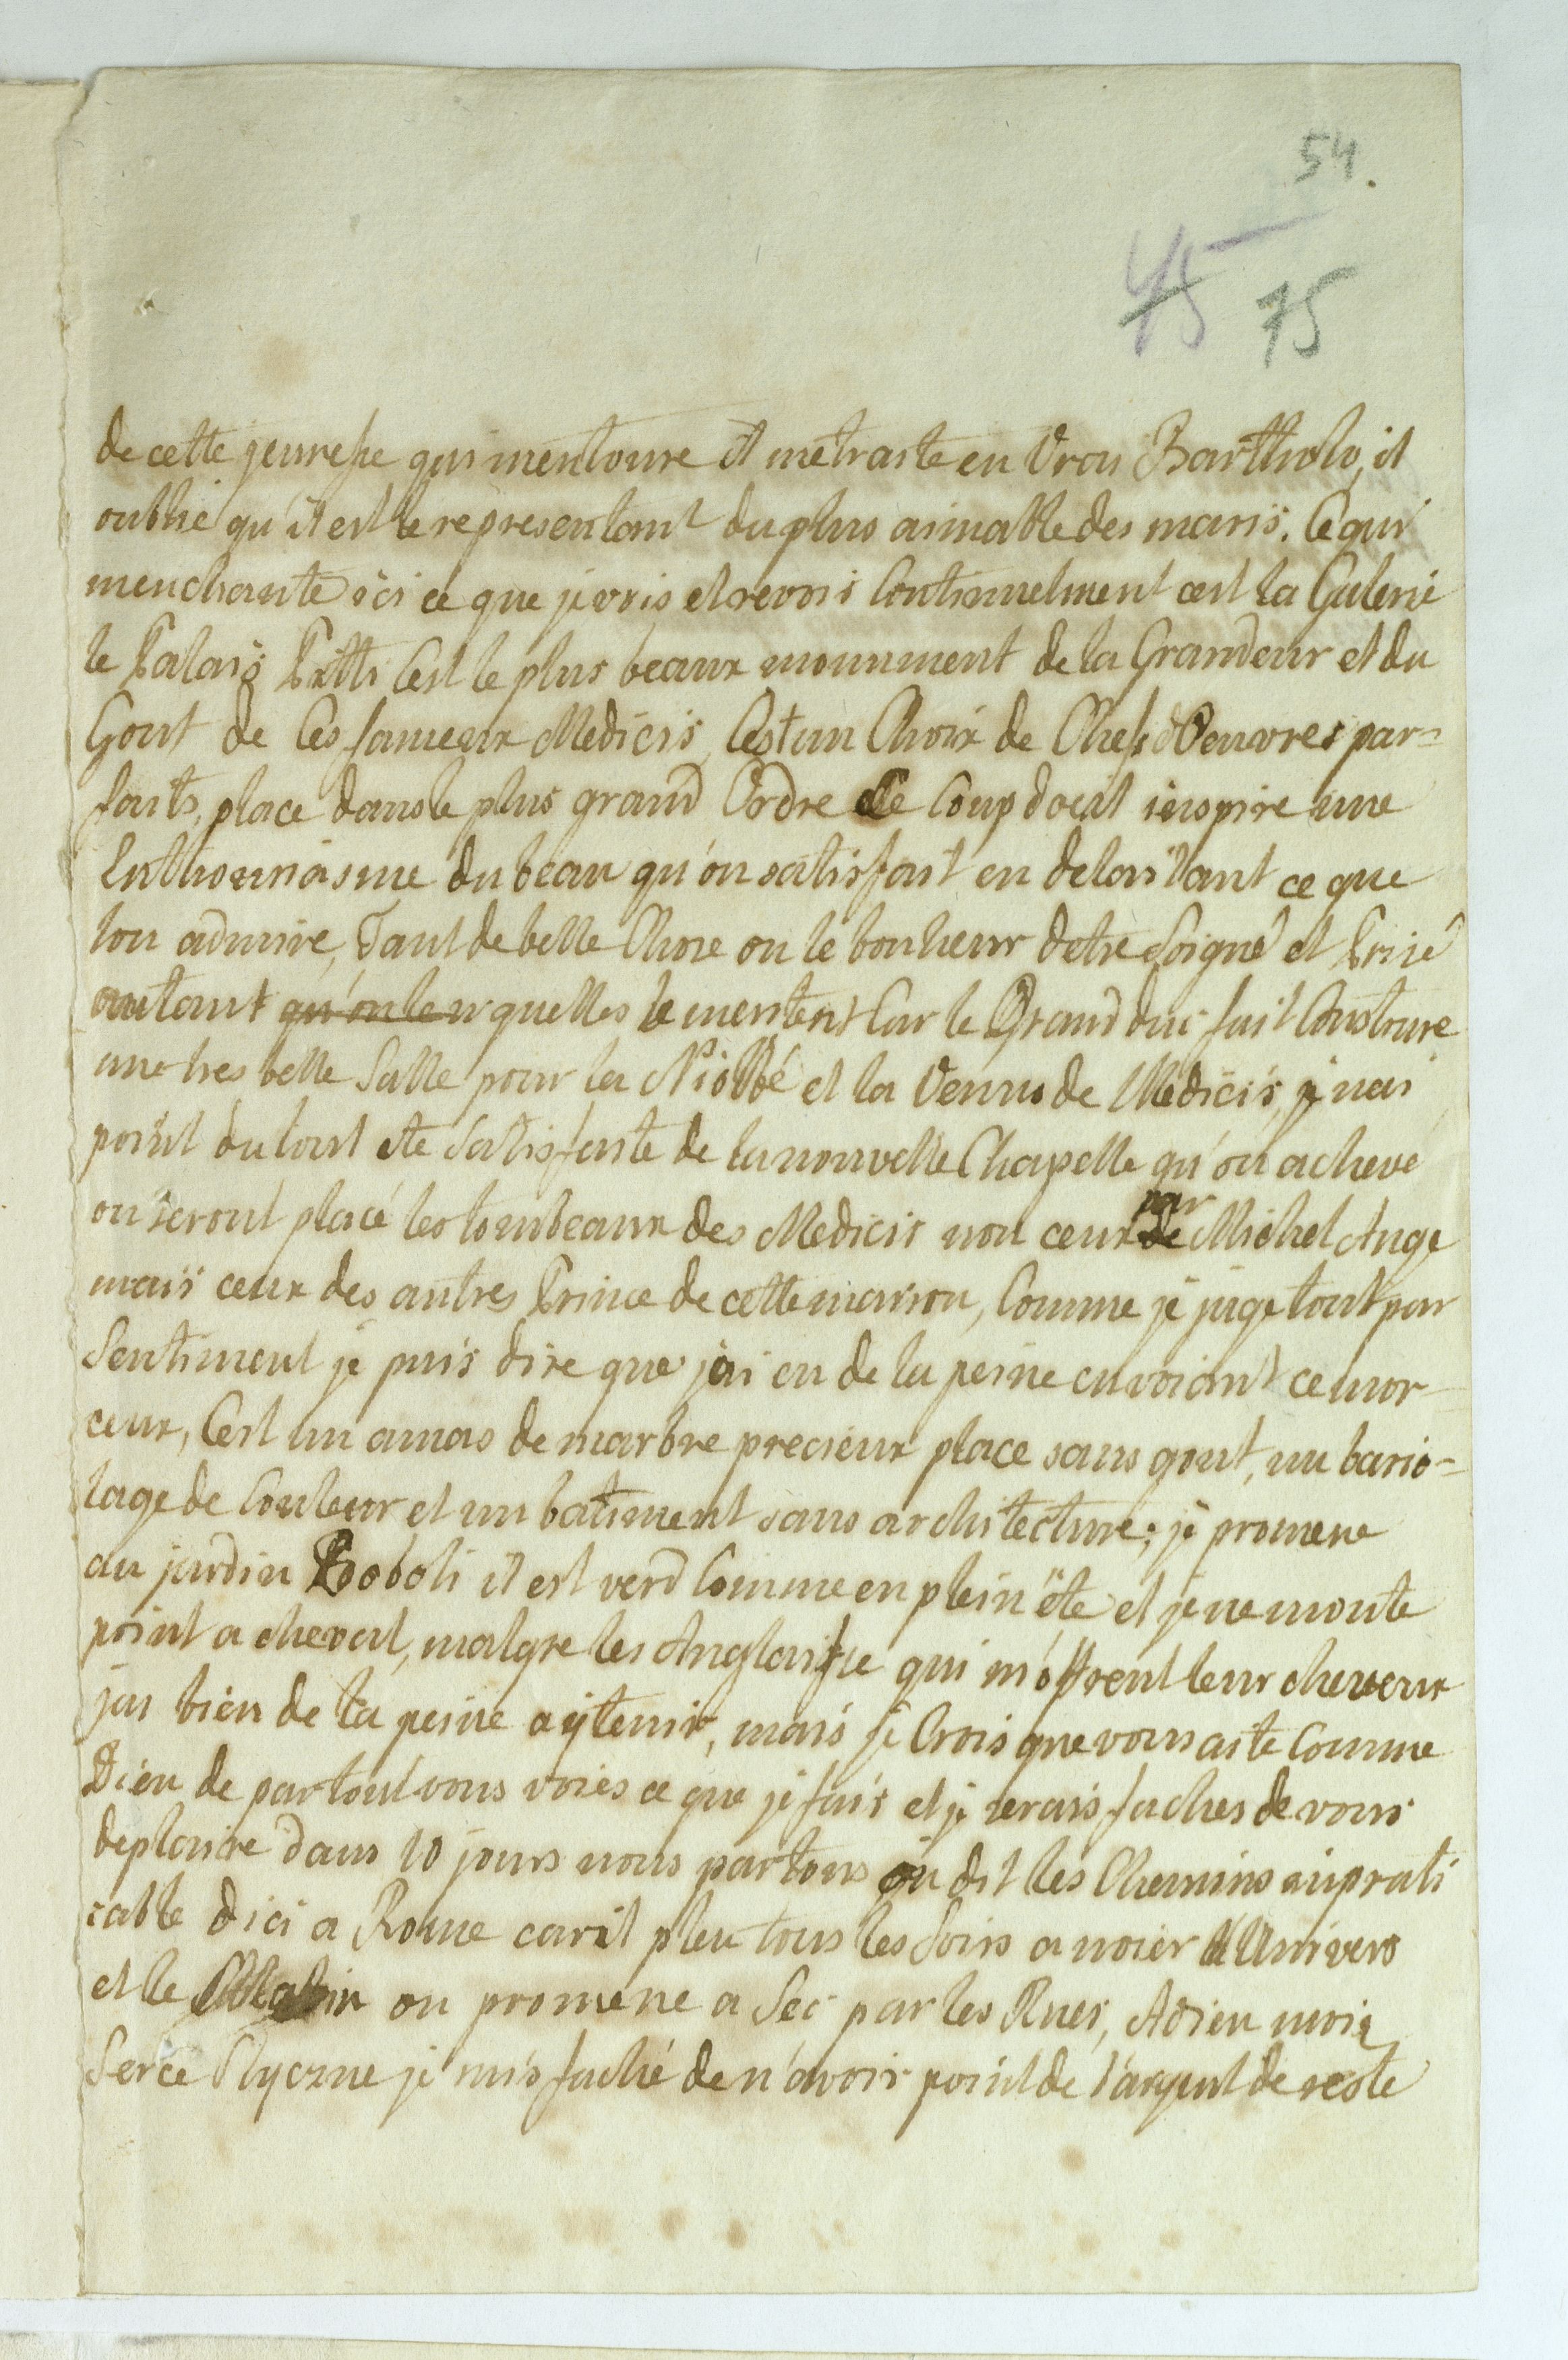 54.
45 75
de cette jeunesse qui mentoure il me traite en vrai Bartholo, il
oublie qu'il est le representant du plus aimable des maris. Ce qui
menchante ici ce que je vois et revois Continuelment cest la Galerie
le Palais Pitti Cest le plus beaux monument de la Grandeur et du
Gout de Ces fameux Medicis, Cest un Choix de Chefs dOeuvres par=
faits, place dans le plus grand Ordre Ce Coup doeil inspire une
Enthousiasme du beau qu'on satisfait en detaillant ce que
lon admire, Tant de belle Chose on le bonheur detre Soigné et Prisé
autant qu'on le n quelles le meritent Car le Grand duc fait Construire
une tres belle Salle pour la Niobbé et la Venus de Medicis, je nai
point du tout ete Satisfaite de la nouvelle Chapelle qu'on acheve
ou seront placé les tombeaux des Medicis non ceux de par Michel Ange
mais ceux des autres Prince de cette maison, Comme je juge tout par
Sentiment je puis dire que jai eu de la peine en voiant ce mor=
ceux, Cest un amas de marbre precieux place sans gout, un bario=
lage de Couleur et un batiment sans architecture; je promene
au jardin Boboli il est verd Comme en plein éte et je ne monte
point a cheval, malgre les Anglaisse qui m'offrent leur cheveux
jai bien de la peine a y tenir, mais je Crois que vous aite Comme
Dieu de partout vous voies ce que je fais et je serais faches de vous
deplaire dans 10 jours nous partons on dit les Chemins inprati
cable dici a Rome car il pleu tous les Soirs a noier l'Univers
et le Matin on promene a Sec par les Rues, Adieu moie
Serce Slyczne je suis faché de n'avoir point de l'argent de reste